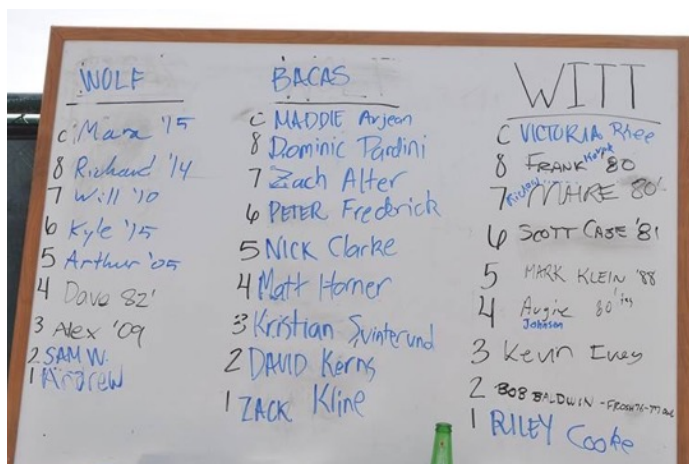 WOLF
C Mara '15
8 Richard '14
7 Will '10
6 Kyle '15
5 Arthur '05
4 Dave 82'
3 Alex '09
2 SAM W.
1 Andrew
BACAS
C MADDIE Arjean
8 Dominic Pardini
7 Zach Alter
6 PETER Frederick
5 NICK Clarke
4 Matt Horner
3 Kristian Svinterund
2 DAVID Kerns
1 ZACK Kline
WITT
C VICTORIA Rhee
8 FRANK 80
7 MAIRE 80'
6 SCOTT CASE '81
5 MARK KLEIN '88
4 Augie 80'
Johnson
3 Kevin Ivey
2 BOB BALDWIN - FROSH 76-77
1 RILEY Cooke